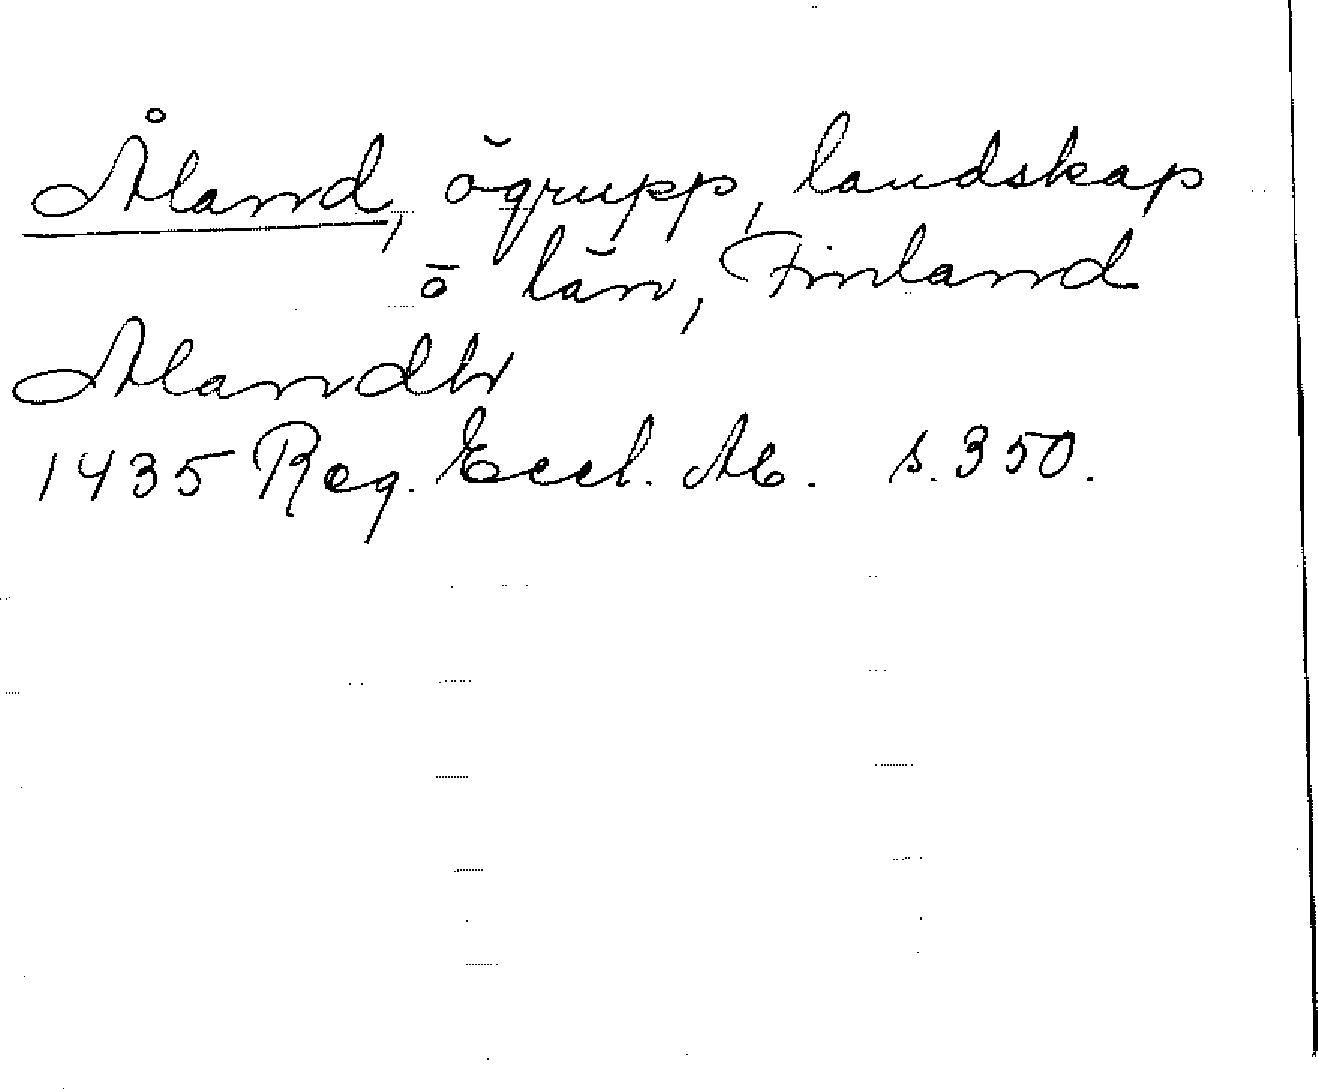 Åland, ögrupp, landskap
o län, Finland
Alandh
1435 Reg. Eccl. Ab. s. 350.